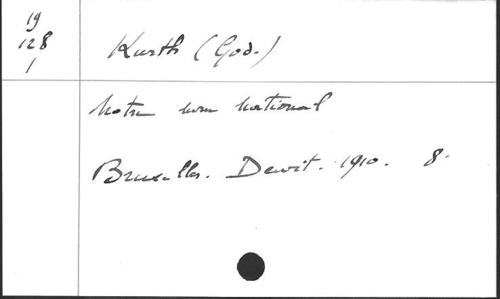 19
128
1
Kurth (God.)
Notre nom national
Bruxelles. Dewit. 1910. 8.